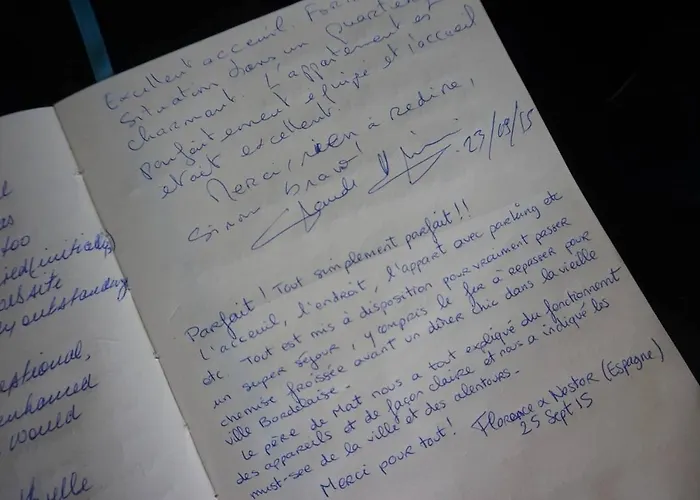 too
outstanding
would
Excellent acceuil.
Situation dans un quartier
charmant. L'appartement est
parfaitement équipé et l'accueil
était excellent.
Merci, rien à redire,
sinon bravo!
23/09/15
Parfait! Tout simplement parfait!!
L'acceuil, l'endroit, l'appart avec parking etc
etc. Tout est mis à disposition pour vraiment passer
un super séjour, y compris le fer à repasser pour
chemise froissée avant un dîner chic dans la vieille
ville Bordelaise.
Le père de Mat nous a tout expliqué du fonctionnement
des appareils et de façon claire et nous a indiqué les
must-see de la ville et des alentours.
Merci pour tout! Florence & Nestor (Espagne)
25 Sept 15